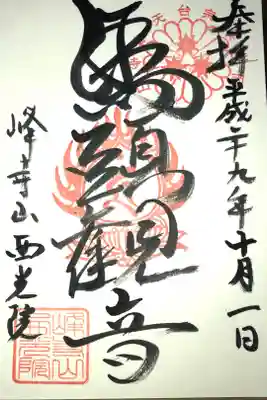 奉拝 平成二十九年十月一日
馬頭観音
峰寺山西光院
天台宗
峰寺山
西光院